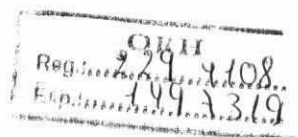 OEH
Reg.: 229 4108
Exp.: 149 7319